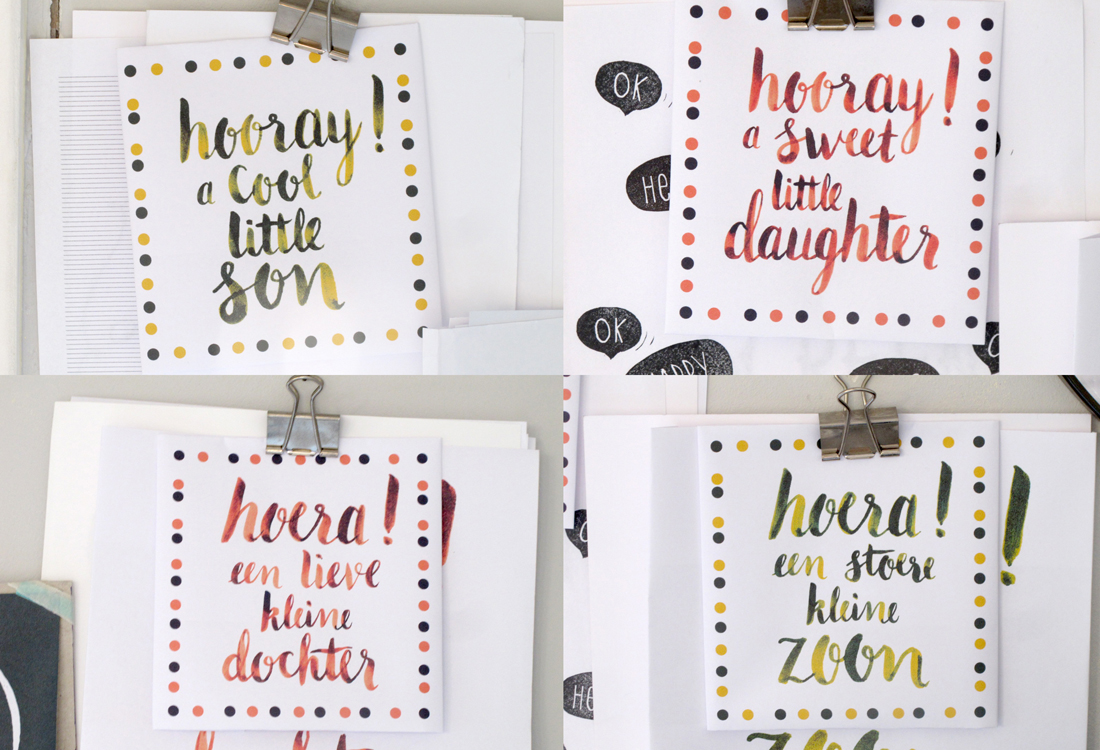 hooray!
a cool
little
son
OK
HE
hooray!
a sweet
little
daughter
OK
HAPPY
hoera!
een lieve
kleine
dochter
HE
hoera!
een stoere
kleine
zoon
!